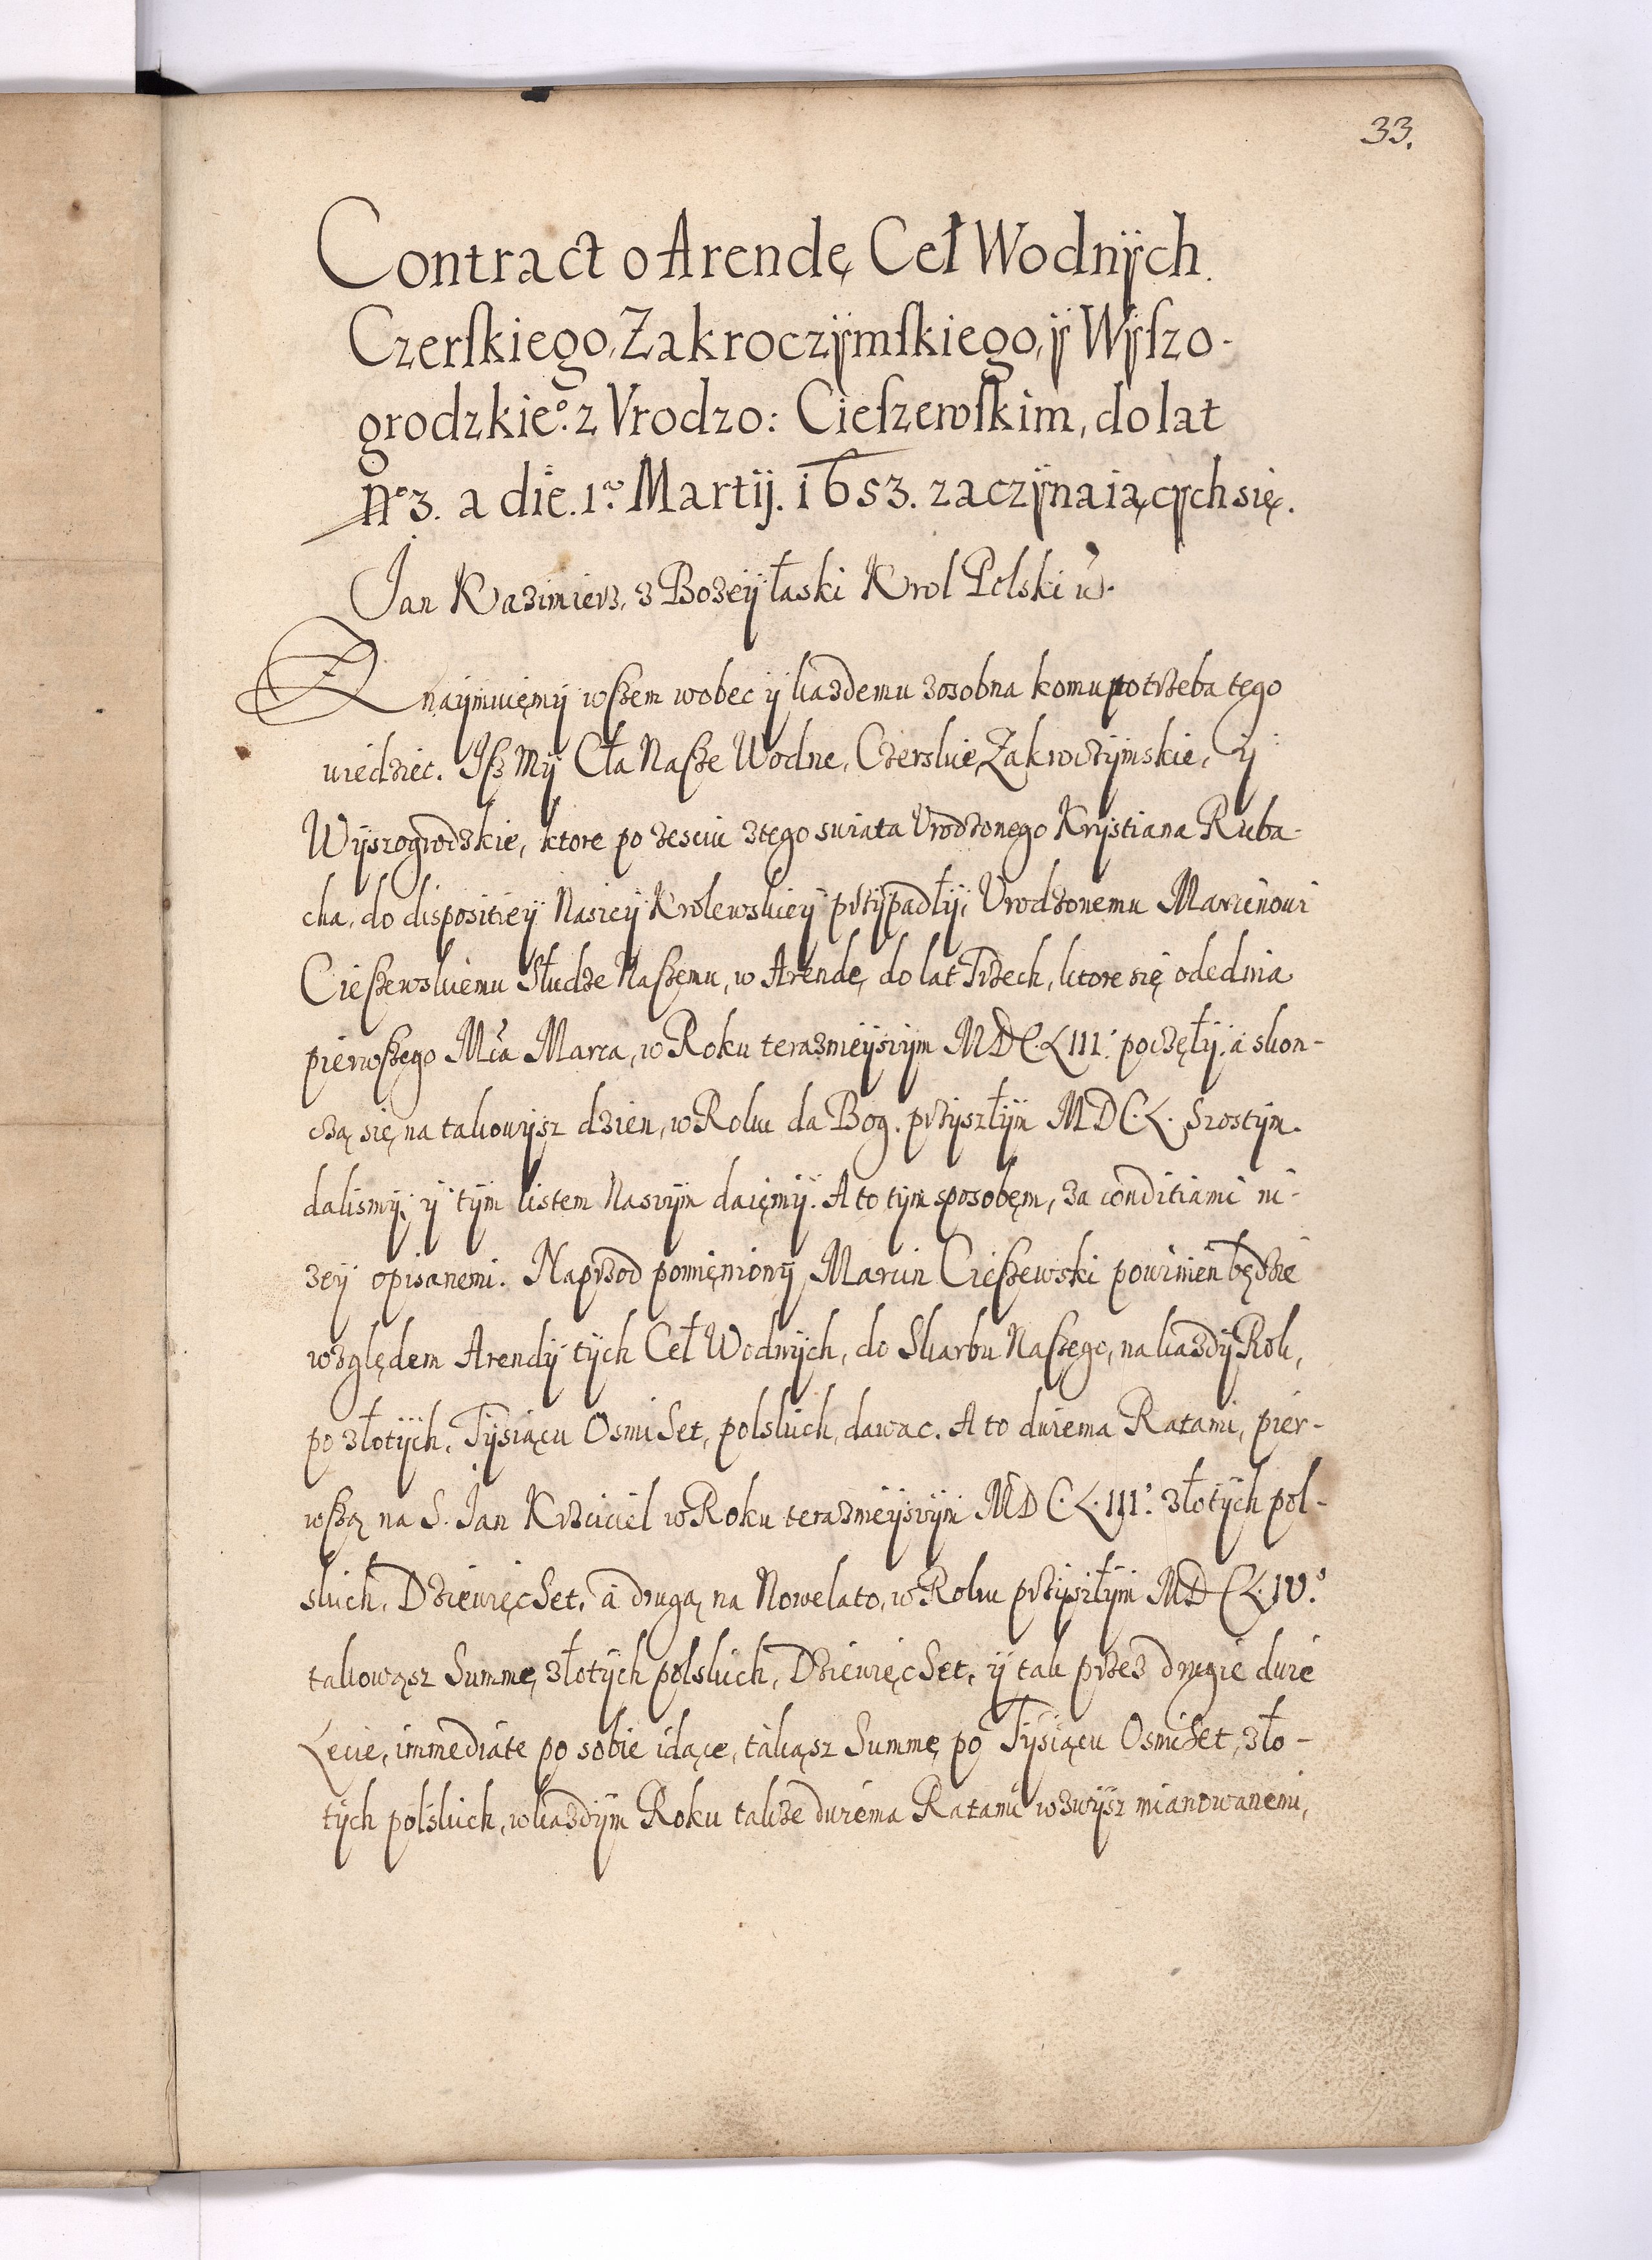 33.
Contract o Arendę Ceł Wodnÿch
Czerſkiego, Zakroczÿmſkiego, ÿ Wÿſzo-
grodzkieº. z Vrodzo: Cieſzewſkim, do lat
nº 3. a die. 1ª Martij. 1653. zaczÿnaiącÿch się.
Jan Kazimierz, z Bozeÿ łaski Krol Polski
Znaÿmuięmÿ wſzem wobec ÿ kazdemu zosobna komu potrzeba tego
wiedziec. Iſz Mÿ Cła Naſze Wodne, Czerskie, Zakroczÿmskie, ÿ
Wÿszogrodzkie, ktore po zesciu z tego swiata Vrodzonego Krÿstiana Ruba-
cha, do dispositieÿ Naszeÿ Krolewskieÿ przÿpadłÿ, Vrodzonemu Marcinowi
Cieſzewskiemu Słudze Naſzemu, w Arendę, do lat Trzech, ktore się odednia
pierwſzego Mca Marca, w Roku terazmieÿszÿm MDC.LIII. poczęłÿ, a skon-
czą się na takowÿsz dzien, w Roku da Bog. przÿszłÿm MDC.L. Szostÿm.
dalismÿ, ÿ tÿm listem Naszÿm daięmÿ. A to tÿm sposobęm, za conditiami ni-
zeÿ opisanemi. Naprzod pomięnionÿ Marcin Cieſzewski powinien będzie
względem Arendÿ tÿch Ceł Wodnÿch, do Skarbu Naſzego, na kazdÿ Rok,
po złotÿch, Tÿsiącu Osmi Set, polskich, dawac. A to dwiema Ratami, pier-
wſzą na S. Jan Krzciciel w Roku terazmieÿszÿm MDC.L.III. złotÿch pol-
skich, Dziewięc Set, a drugą na Nowelato, w Roku przÿszłÿm MDCL.IV.
takowąsz Summę złotÿch polskich, Dziewięc Set, ÿ tak przez drugie dwie
Lecie, immediate po sobie idące, takąsz Summę po Tÿsiącu Osmi Set, zło-
tÿch polskich, w kazdÿm Roku takze dwiema Ratami wzwÿsz mianowanemi,